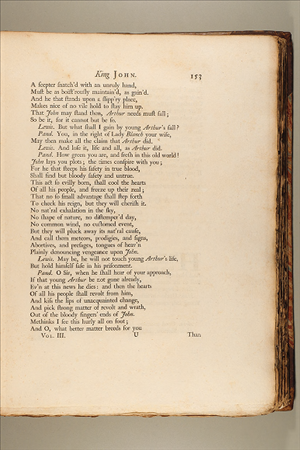 King JOHN. 153
A scepter snatch'd with an unruly hand,
Must be as boist'rously maintain'd, as gain'd.
And he that stands upon a slipp'ry place,
Makes nice of no vile hold to stay him up.
That John may stand then, Arthur needs must fall;
So be it, for it cannot but be so.
Lewis. But what shall I gain by young Arthur's fall?
Pand. You, in the right of Lady Blanch your wife,
May then make all the claim that Arthur did.
Lewis. And lose it, life and all, as Arthur did.
Pand. How green you are, and fresh in this old world!
John lays you plots; the times conspire with you;
For he that steeps his safety in true blood,
Shall find but bloody safety and untrue.
This act so evilly born, shall cool the hearts
Of all his people, and freeze up their zeal;
That no so small advantage shall step forth
To check his reign, but they will cherish it.
No nat'ral exhalation in the sky,
No shape of nature, no distemper'd day,
No common wind, no customed event,
But they will pluck away its nat'ral cause,
And call them meteors, prodigies, and signs,
Abortives, and presages, tongues of heav'n
Plainly denouncing vengeance upon John.
Lewis. May be, he will not touch young Arthur's life,
But hold himself safe in his prisonment.
Pand. O Sir, when he shall hear of your approach,
If that young Arthur be not gone already,
Ev'n at this news he dies: and then the hearts
Of all his people shall revolt from him,
And kiss the lips of unacquainted change,
And pick strong matter of revolt and wrath,
Out of the bloody fingers' ends of John.
Methinks I see this hurly all on foot;
And O, what better matter breeds for you
VOL. III. U Than